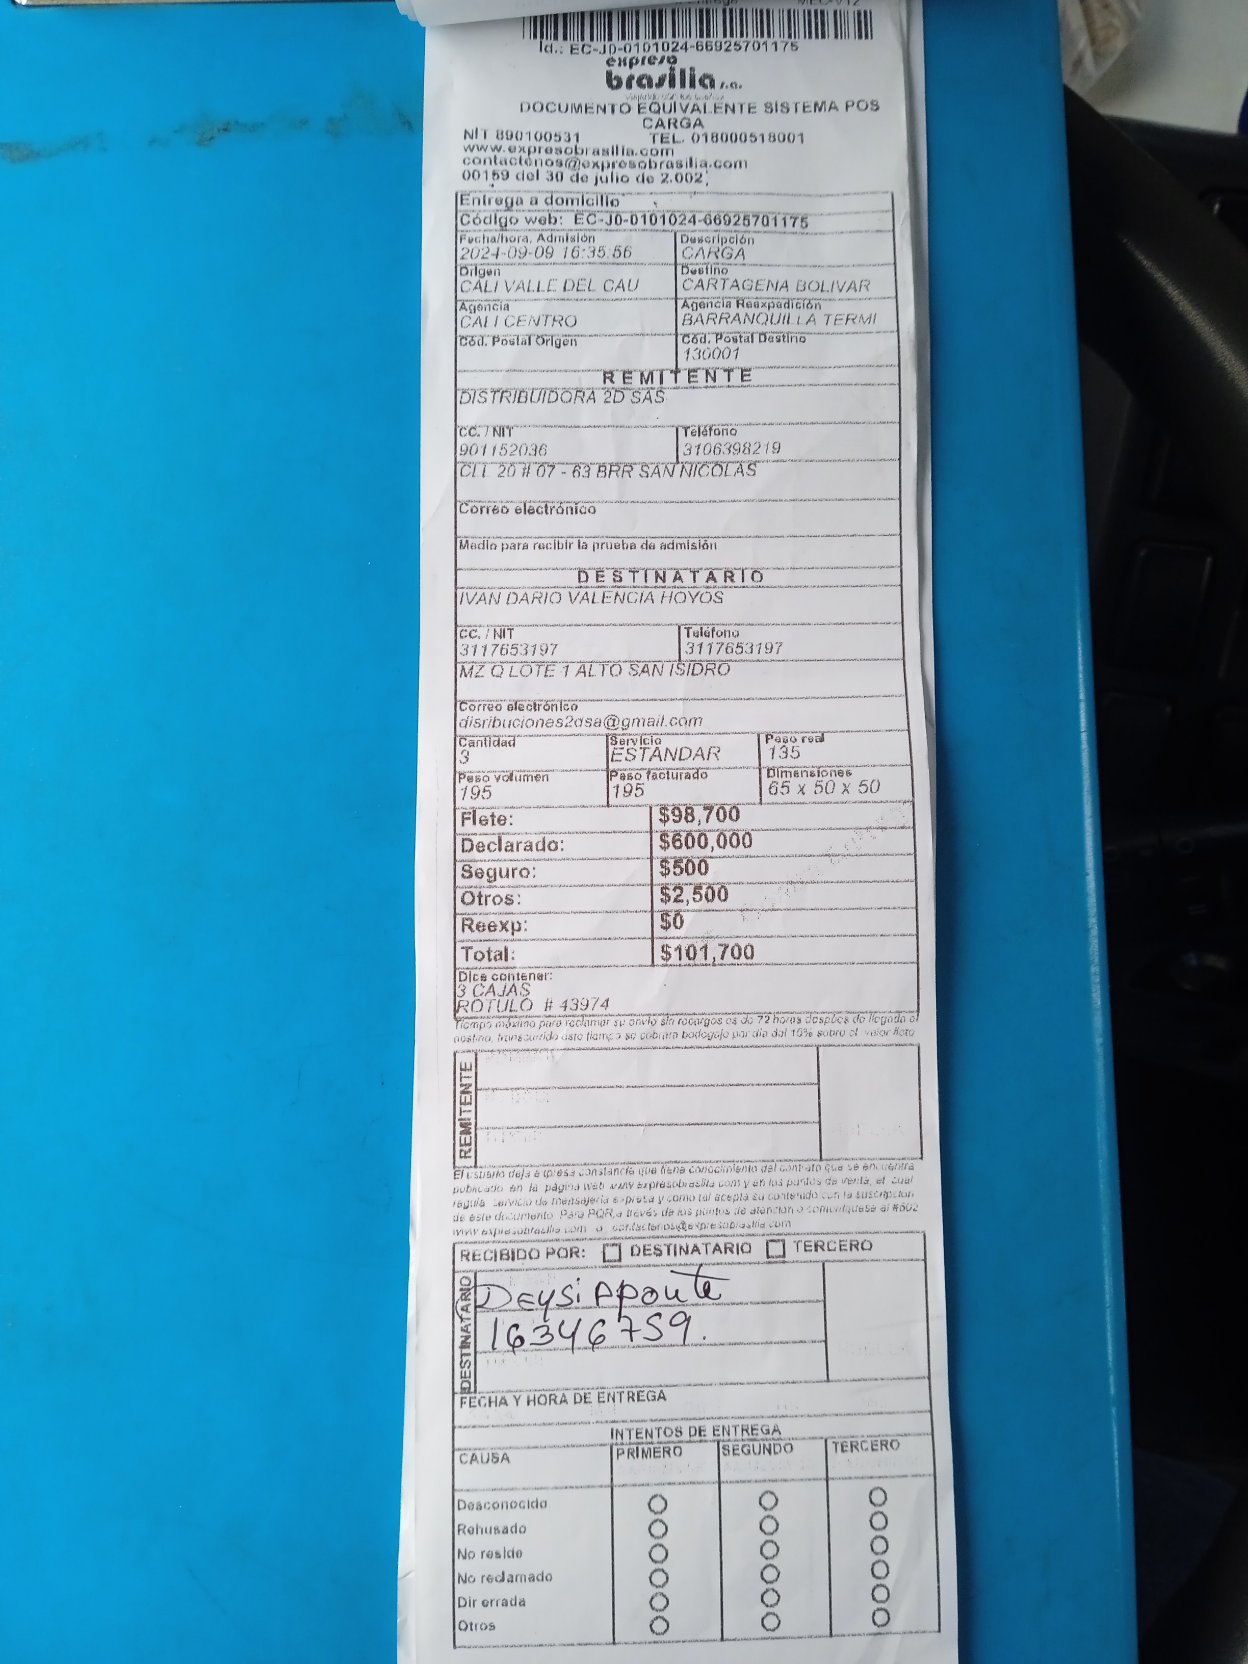 Id.: EC-J0-0101024-66925701175
expreso
brasilia s.a.
DOCUMENTO EQUIVALENTE SISTEMA POS
CARGA
NIT 890100531 TEL. 018000518001
www.expresobrasilia.com
contactenos@expresobrasilia.com
00159 del 30 de julio de 2.002,
Entrega a domicilio
Código web: EC-J0-0101024-66925701175
Fecha/hora. Admisión Descripción
2024-09-09 16:35:56 CARGA
Origen Destino
CALI VALLE DEL CAU CARTAGENA BOLIVAR
Agencia Agencia Reexpedición
CALI CENTRO BARRANQUILLA TERMI
Cód. Postal Origen Cód. Postal Destino
130001
REMITENTE
DISTRIBUIDORA 2D SAS
CC. / NIT Teléfono
901152036 3106398219
CLL 20 # 07 - 63 BRR SAN NICOLAS
Correo electrónico
Medio para recibir la prueba de admisión
DESTINATARIO
IVAN DARIO VALENCIA HOYOS
CC. / NIT Teléfono
3117653197 3117653197
MZ Q LOTE 1 ALTO SAN ISIDRO
Correo electrónico
disribuciones2dsa@gmail.com
Cantidad Servicio Peso real
3 ESTANDAR 135
Peso volumen Peso facturado Dimensiones
195 195 65 x 50 x 50
Flete: $98,700
Declarado: $600,000
Seguro: $500
Otros: $2,500
Reexp: $0
Total: $101,700
Dice contener:
3 CAJAS
ROTULO # 43974
Tiempo máximo para reclamar su envío sin recargos es de 72 horas después de llegada al
destino, transcurrido este tiempo se cobrara bodegaje por día del 10% sobre el valor flete
REMITENTE
El usuario deja expresa constancia que tiene conocimiento del contrato que se encuentra
publicado en la página web www.expresobrasilia.com y en los puntos de venta, el cual
regula servicio de mensajería expresa y como tal acepta su contenido con la suscripción
de este documento. Para PQR a través de los puntos de atención o comuníquese al #602
www.expresobrasilia.com o contactenos@expresobrasilia.com
RECIBIDO POR: DESTINATARIO TERCERO
DESTINATARIO
Deysi Aponte
16346759.
FECHA Y HORA DE ENTREGA
INTENTOS DE ENTREGA
CAUSA PRIMERO SEGUNDO TERCERO
Desconocido
Rehusado
No reside
No reclamado
Dir errada
Otros